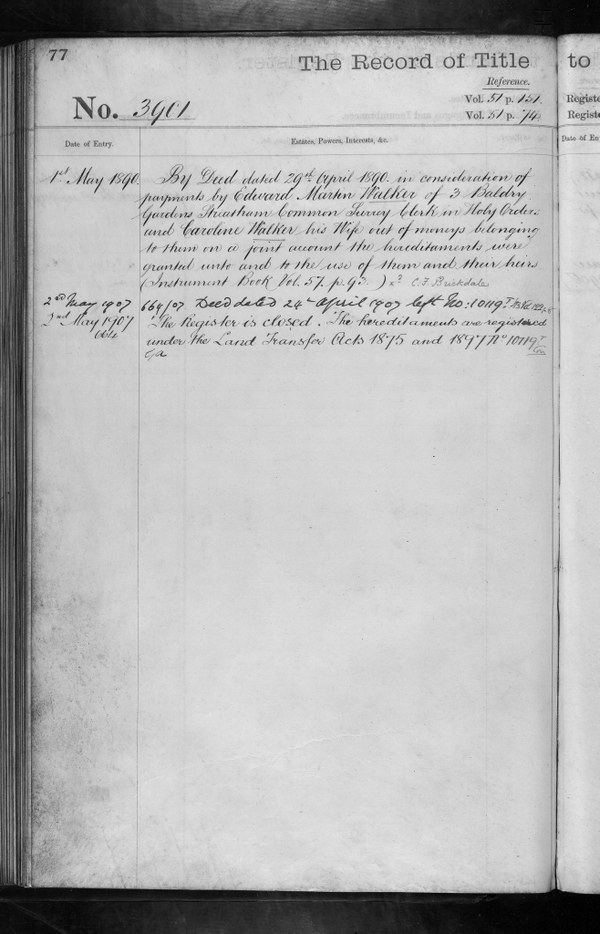 77
The Record of Title
Reference.
No. 3901
Vol. 51 p. 151.
Vol. 51 p. 74.
Date of Entry.
Estates, Powers, Interests, &c.
1st May 1890.
By Deed dated 29th April 1890. in consideration of
payments by Edward Martin Walker of 3 Baldry
Gardens Streatham Common Surrey Clerk in Holy Orders
and Caroline Walker his Wife out of moneys belonging
to them on a joint account the hereditaments were
granted unto and to the use of them and their heirs
(Instrument Book Vol. 57. p. 93. ) C F Brickdale
2nd May 1907
664/07 Deed dated 24th April 1907 left No: 10119
2nd May 1907
664
The Register is closed. The hereditaments are registered
under the Land Transfer Acts 1875 and 1897 No 10119
to
Registe
Registe
Date of En